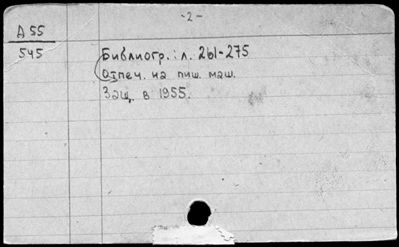 -2-
Д 55
545
Библиогр.: л. 261-275
Отпеч. на пиш. маш.
Защ. в 1955.